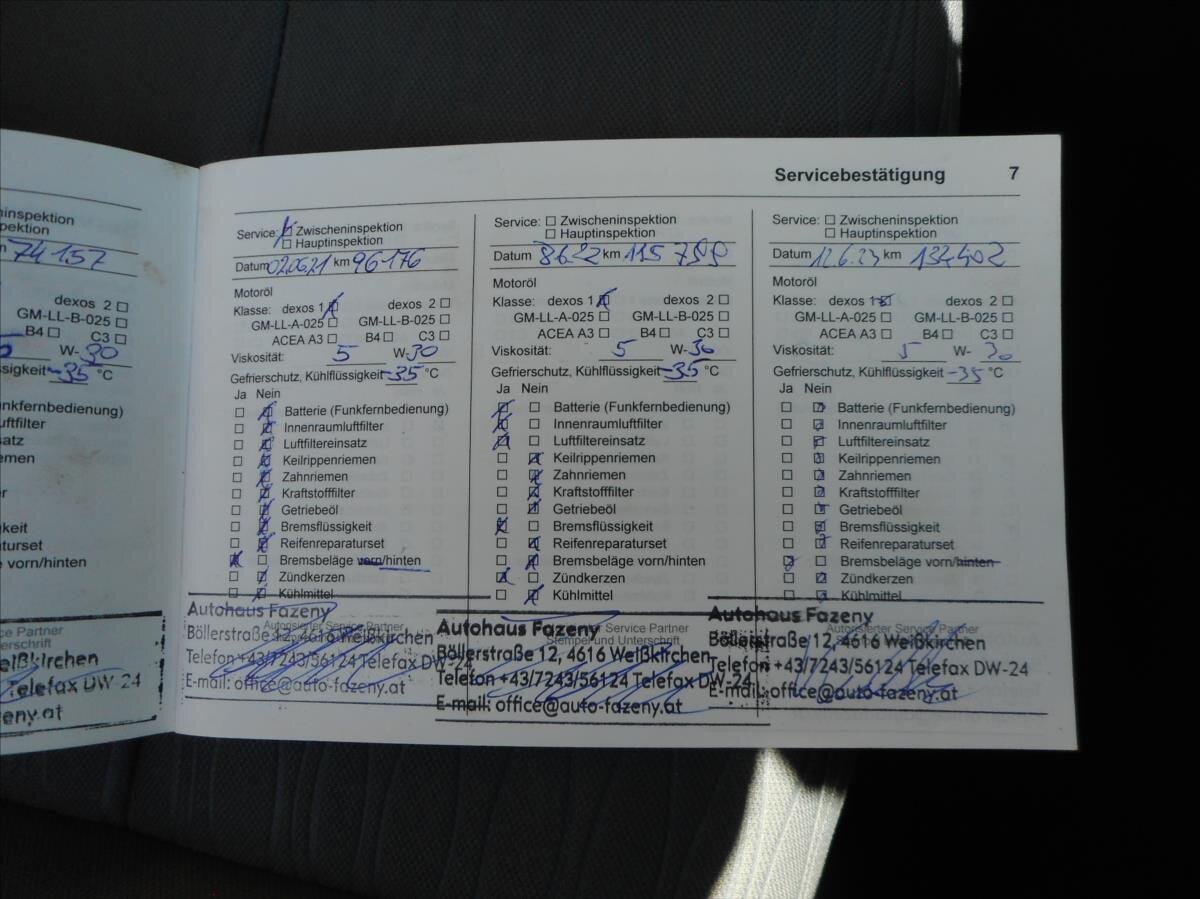 ninspektion
inspektion
74157
dexos 2
GM-LL-B-025
B4 C3
W-30
ssigkeit -35 °C
nkfernbedienung)
uftfilter
satz
emen
r
gkeit
aturset
e vorn/hinten
ce Partner
erschrift
eißkirchen
Telefax DW-24
zeny.at
Servicebestätigung 7
Service: Zwischeninspektion
Hauptinspektion
Datum 02.06.21 km 96176
Motoröl
Klasse: dexos 1 dexos 2
GM-LL-A-025 GM-LL-B-025
ACEA A3 B4 C3
Viskosität: 5 W-30
Gefrierschutz, Kühlflüssigkeit -35 °C
Ja Nein
Batterie (Funkfernbedienung)
Innenraumluftfilter
Luftfiltereinsatz
Keilrippenriemen
Zahnriemen
Kraftstofffilter
Getriebeöl
Bremsflüssigkeit
Reifenreparaturset
Bremsbeläge vorn/hinten
Zündkerzen
Kühlmittel
Autorisierter Service Partner
Autohaus Fazeny
Böllerstraße 12, 4616 Weißkirchen
Telefon +43/7243/56124 Telefax DW-24
E-mail: office@auto-fazeny.at
Service: Zwischeninspektion
Hauptinspektion
Datum 8.6.22 km 115799
Motoröl
Klasse: dexos 1 dexos 2
GM-LL-A-025 GM-LL-B-025
ACEA A3 B4 C3
Viskosität: 5 W-30
Gefrierschutz, Kühlflüssigkeit -35 °C
Ja Nein
Batterie (Funkfernbedienung)
Innenraumluftfilter
Luftfiltereinsatz
Keilrippenriemen
Zahnriemen
Kraftstofffilter
Getriebeöl
Bremsflüssigkeit
Reifenreparaturset
Bremsbeläge vorn/hinten
Zündkerzen
Kühlmittel
Service Partner
Stempel und Unterschrift
Autohaus Fazeny
Böllerstraße 12, 4616 Weißkirchen
Telefon +43/7243/56124 Telefax DW-24
E-mail: office@auto-fazeny.at
Service: Zwischeninspektion
Hauptinspektion
Datum 12.6.23 km 132402
Motoröl
Klasse: dexos 1 dexos 2
GM-LL-A-025 GM-LL-B-025
ACEA A3 B4 C3
Viskosität: 5 W-30
Gefrierschutz, Kühlflüssigkeit -35 °C
Ja Nein
Batterie (Funkfernbedienung)
Innenraumluftfilter
Luftfiltereinsatz
Keilrippenriemen
Zahnriemen
Kraftstofffilter
Getriebeöl
Bremsflüssigkeit
Reifenreparaturset
Bremsbeläge vorn/hinten
Zündkerzen
Kühlmittel
Autorisierter Service Partner
Autohaus Fazeny
Böllerstraße 12, 4616 Weißkirchen
Telefon +43/7243/56124 Telefax DW-24
E-mail: office@auto-fazeny.at